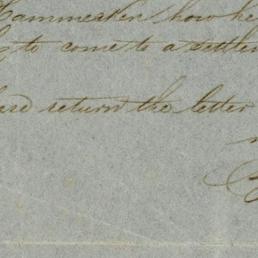 Hammersken how he
to come to a settlem
return the letter